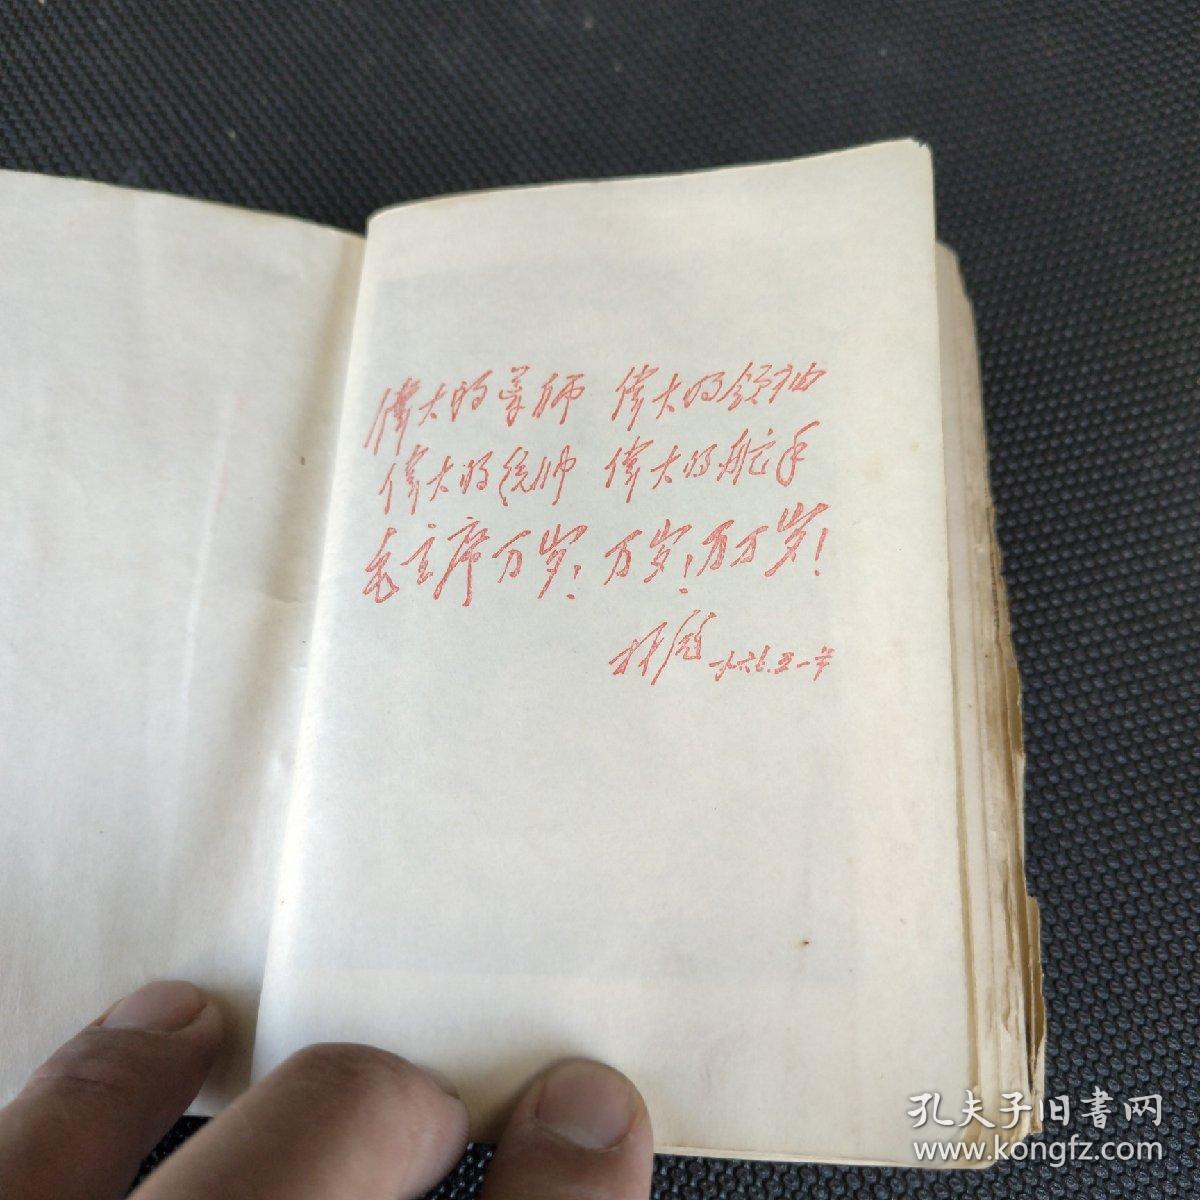 偉大的导师 偉大的领袖
偉大的统帅 偉大的舵手
毛主席万岁！万岁！万万岁！
林彪
孔夫子旧書网
www.kongfz.com